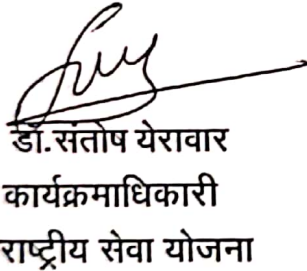 डॉ.संतोष येरावार
कार्यक्रमाधिकारी
राष्ट्रीय सेवा योजना